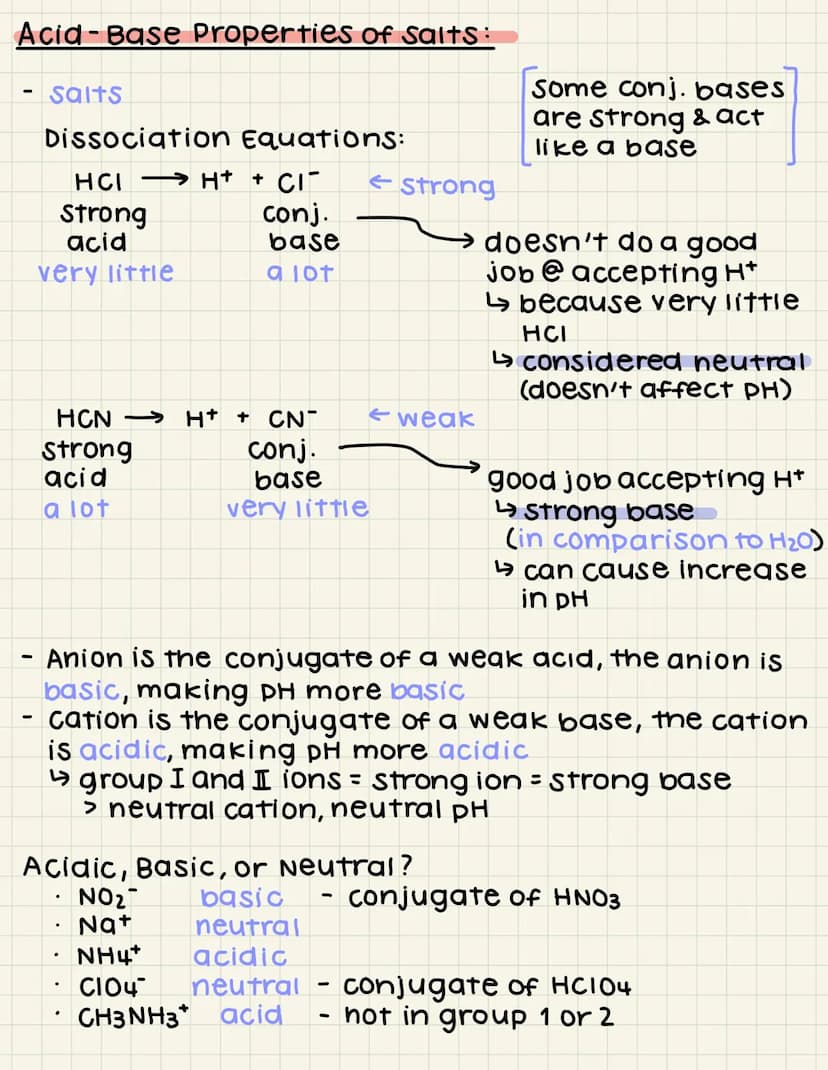 Acid-Base Properties of Salts:
- salts
[some conj. bases
are strong & act
like a base]
Dissociation Equations:
HCl → H⁺ + Cl⁻ ← strong
strong conj.
acid base
very little a lot
→ doesn't do a good
job @ accepting H⁺
↳ because very little
HCl
↳ considered neutral
(doesn't affect pH)
HCN → H⁺ + CN⁻ ← weak
strong conj.
acid base
a lot very little
→ good job accepting H⁺
↳ strong base
(in comparison to H₂O)
↳ can cause increase
in pH
- Anion is the conjugate of a weak acid, the anion is
basic, making pH more basic
- cation is the conjugate of a weak base, the cation
is acidic, making pH more acidic
↳ group I and II ions = strong ion = strong base
> neutral cation, neutral pH
Acidic, Basic, or Neutral?
· NO₂⁻ basic - conjugate of HNO3
· Na⁺ neutral
· NH4⁺ acidic
· ClO4⁻ neutral - conjugate of HClO4
· CH3NH3⁺ acid - not in group 1 or 2